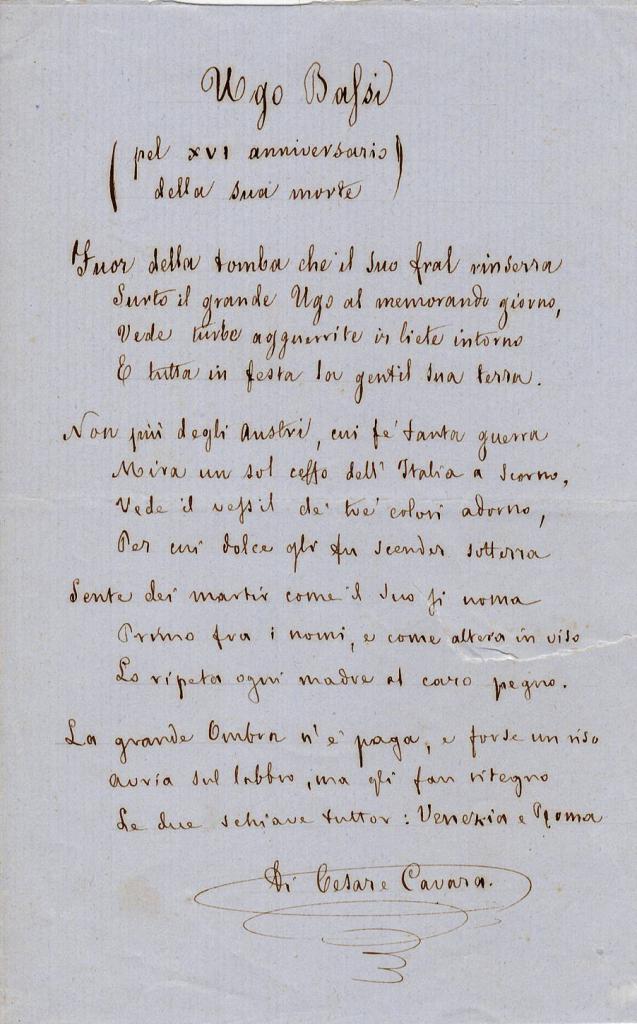 Ugo Bassi
(pel XVI anniversario
della sua morte)
Fuor della tomba che il suo fral rinserra
Surto il grande Ugo al memorando giorno,
Vede turbe agguerrite ir liete intorno
E tutta in festa la gentil sua terra.
Non più degli Austri, cui fe' tanta guerra
Mira un sol ceffo dell' Italia a scorno,
Vede il vessil de' tre' colori adorno,
Per cui dolce gli fu scender sotterra
Sente dei martir come il suo si noma
Primo fra i nomi, e come altera in viso
Lo ripeta ogni madre al caro pegno.
La grande Ombra n' è paga, e forse un riso
Avria sul labbro, ma gli fan ritegno
Le due schiave tuttor: Venezia e Roma
Di Cesare Cavara.